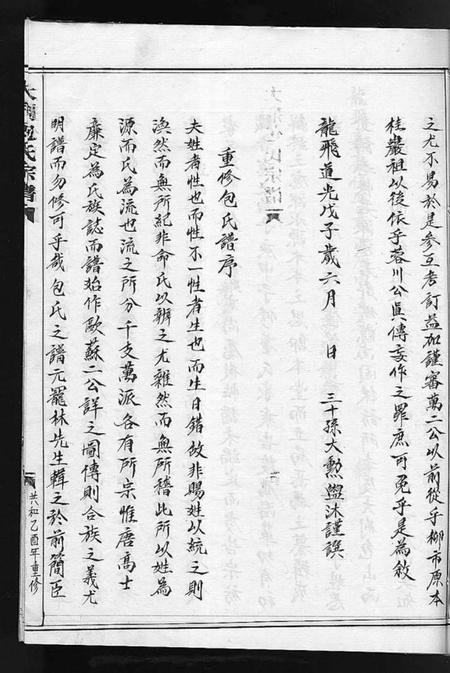 之尤不易於是參互考訂益加謹審萬二公以前從乎柳市原本
桂巖祖以後依乎蓉川公真傳妄作之罪庶可免乎是為敘
龍飛道光戊子歲六月 日 三十孫大勲盥沐謹譔
重修包氏譜序
夫姓者性也而性不一性者生也而生日錯故非賜姓以統之則
渙然而無所紀非命氏以辨之尤雜然而無所稽此所以姓為
源而氏為流也流之所分千支萬派各有所宗惟唐高士
廉定為氏族誌而譜始作歐蘇二公詳之圖傳則合族之義尤
明譜而勿修可乎哉包氏之譜元罷林先生輯之於前簡臣
氏宗譜
共和乙酉年重修